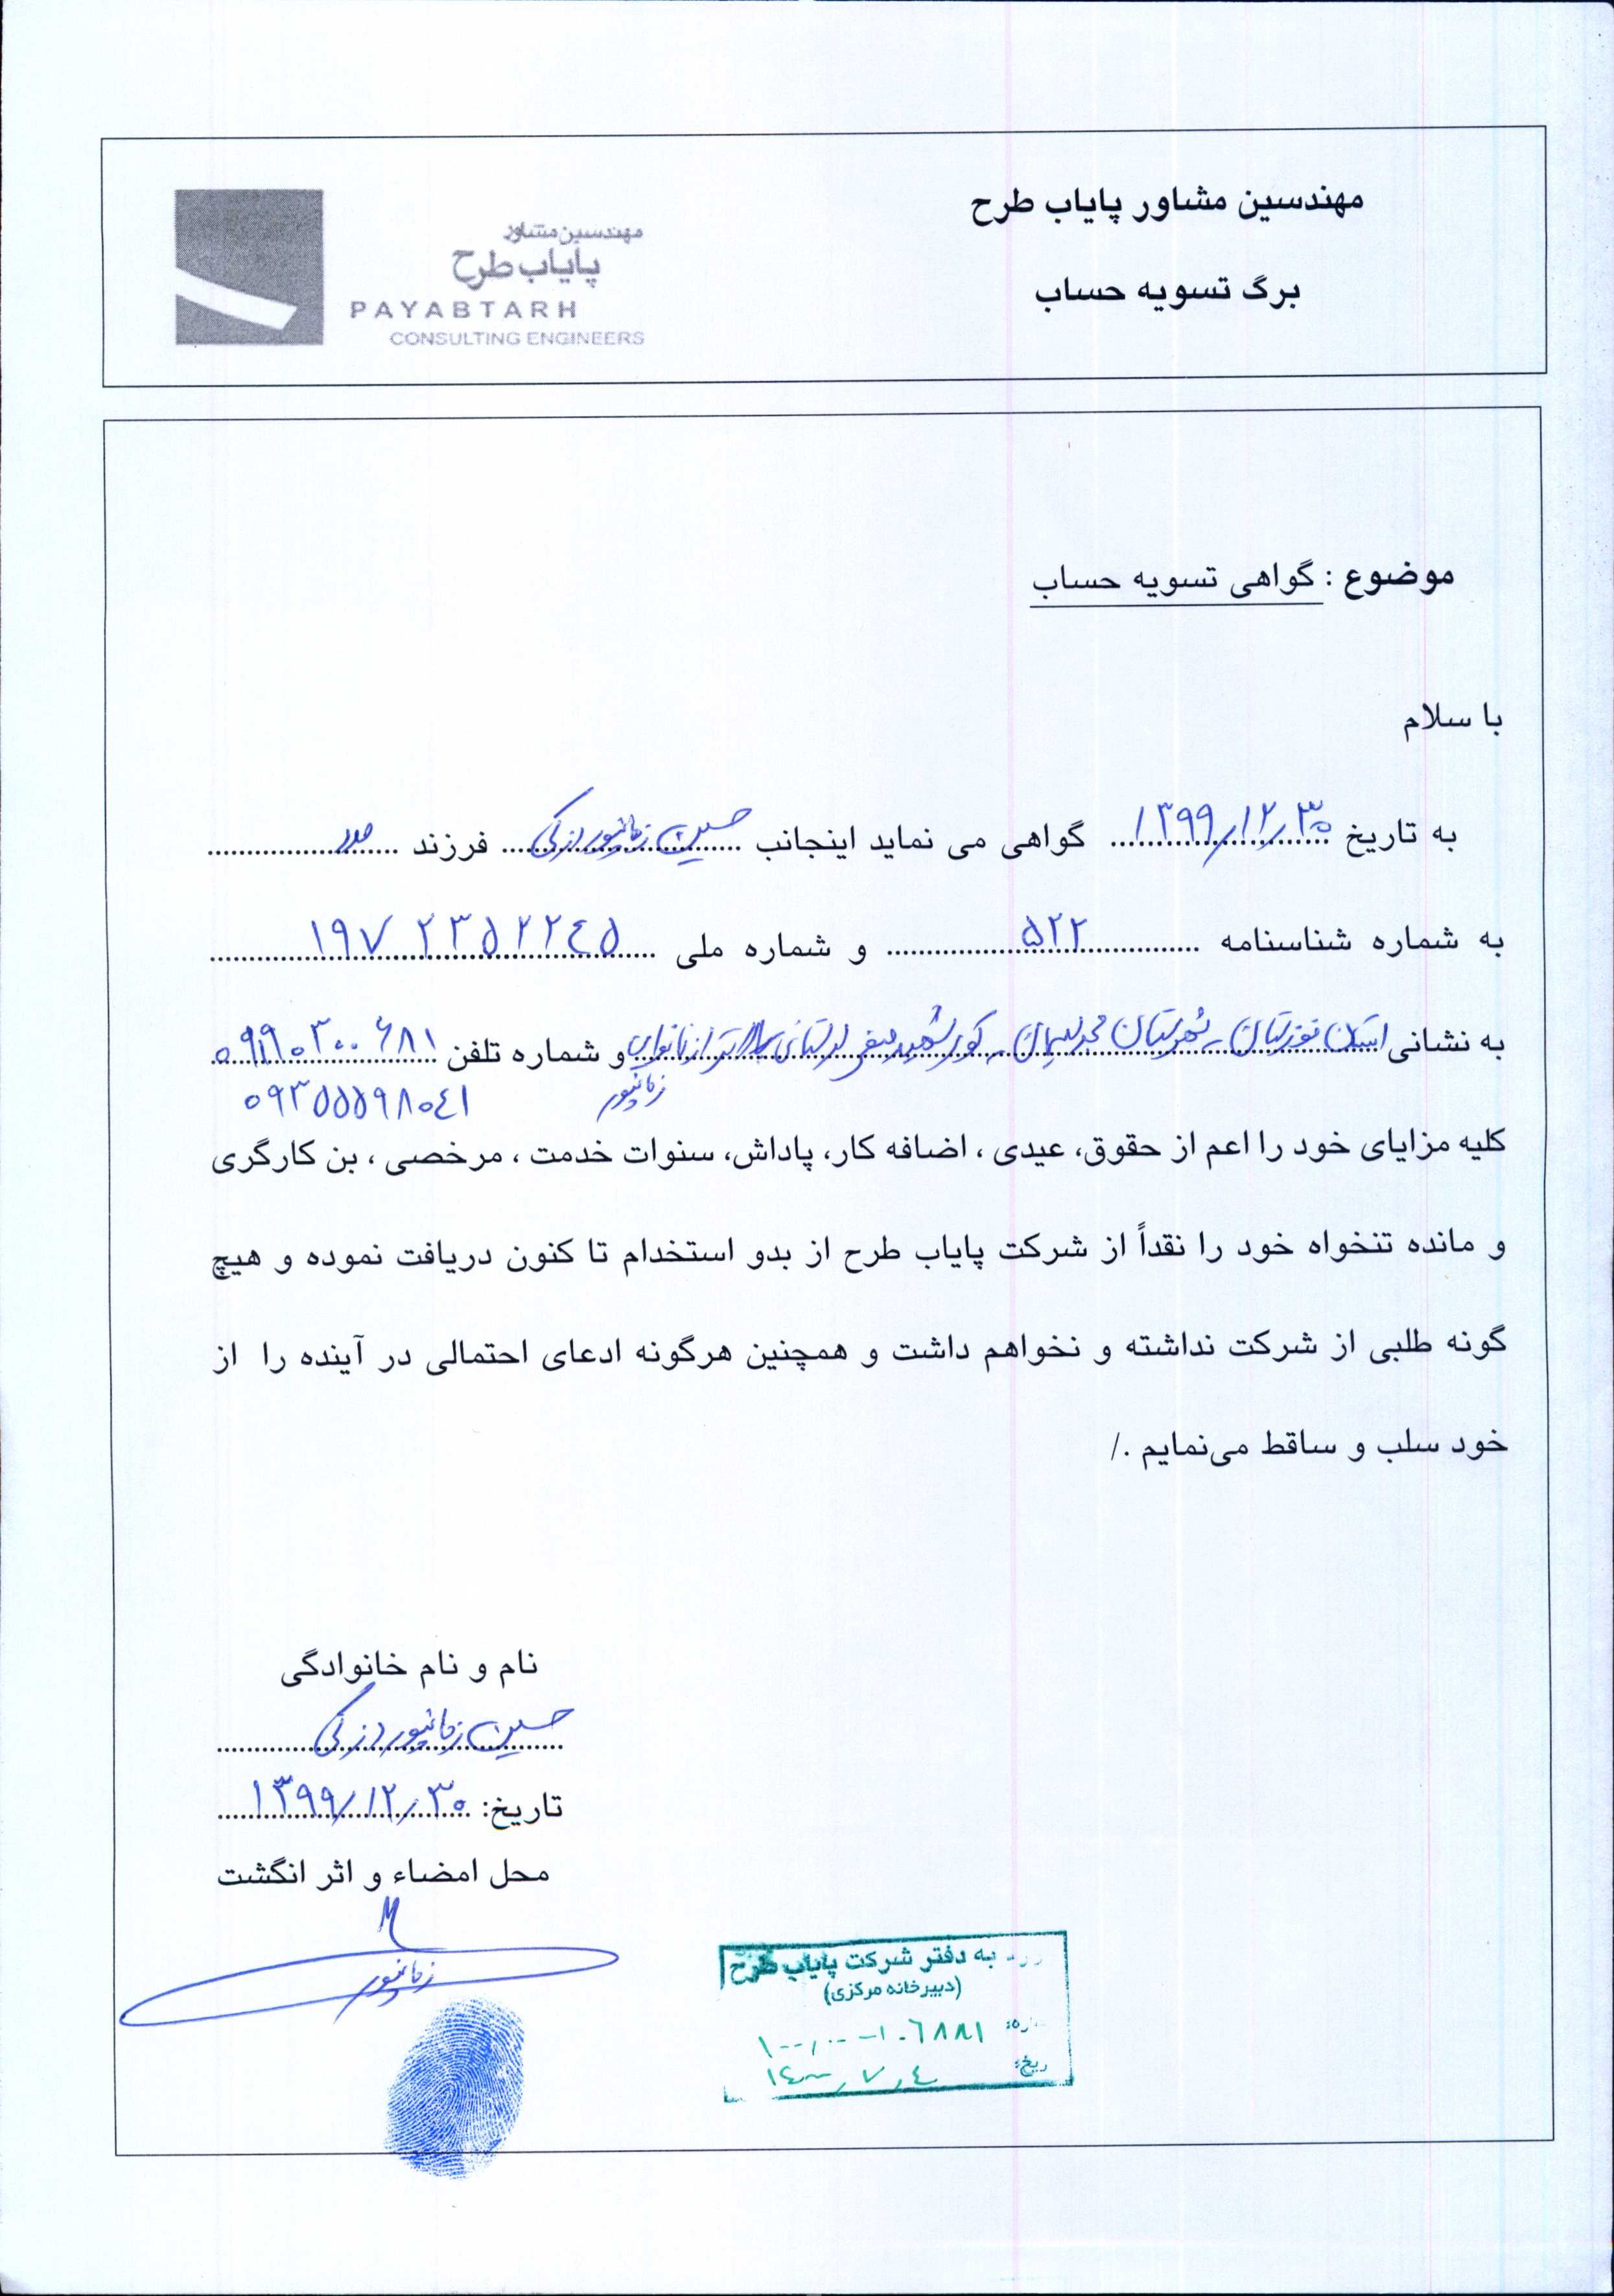 مهندسین مشاور پایاب طرح
برگ تسویه حساب
مهندسین مشاور
پایاب طرح
PAYABTARH
CONSULTING ENGINEERS
موضوع : گواهی تسویه حساب
با سلام
به تاریخ ۱۳۹۹/۱۲/۳۰ گواهی می نماید اینجانب حسین زمانپور دزکی فرزند
به شماره شناسنامه ۵۲۲ و شماره ملی ۱۹۷۲۳۵۲۲٤۵
به نشانی استان خوزستان - شهرستان مسجدسلیمان - و شماره تلفن
زمانپور ۰۹۳۵۵۵۹۸۰٤۱
کلیه مزایای خود را اعم از حقوق، عیدی ، اضافه کار، پاداش، سنوات خدمت ، مرخصی ، بن کارگری
و مانده تنخواه خود را نقداً از شرکت پایاب طرح از بدو استخدام تا کنون دریافت نموده و هیچ
گونه طلبی از شرکت نداشته و نخواهم داشت و همچنین هرگونه ادعای احتمالی در آینده را از
خود سلب و ساقط می‌نمایم ./
نام و نام خانوادگی
حسین زمانپور دزکی
تاریخ: ۱۳۹۹/۱۲/۳۰
محل امضاء و اثر انگشت
زمانپور
به دفتر شرکت پایاب طرح
(دبیرخانه مرکزی)